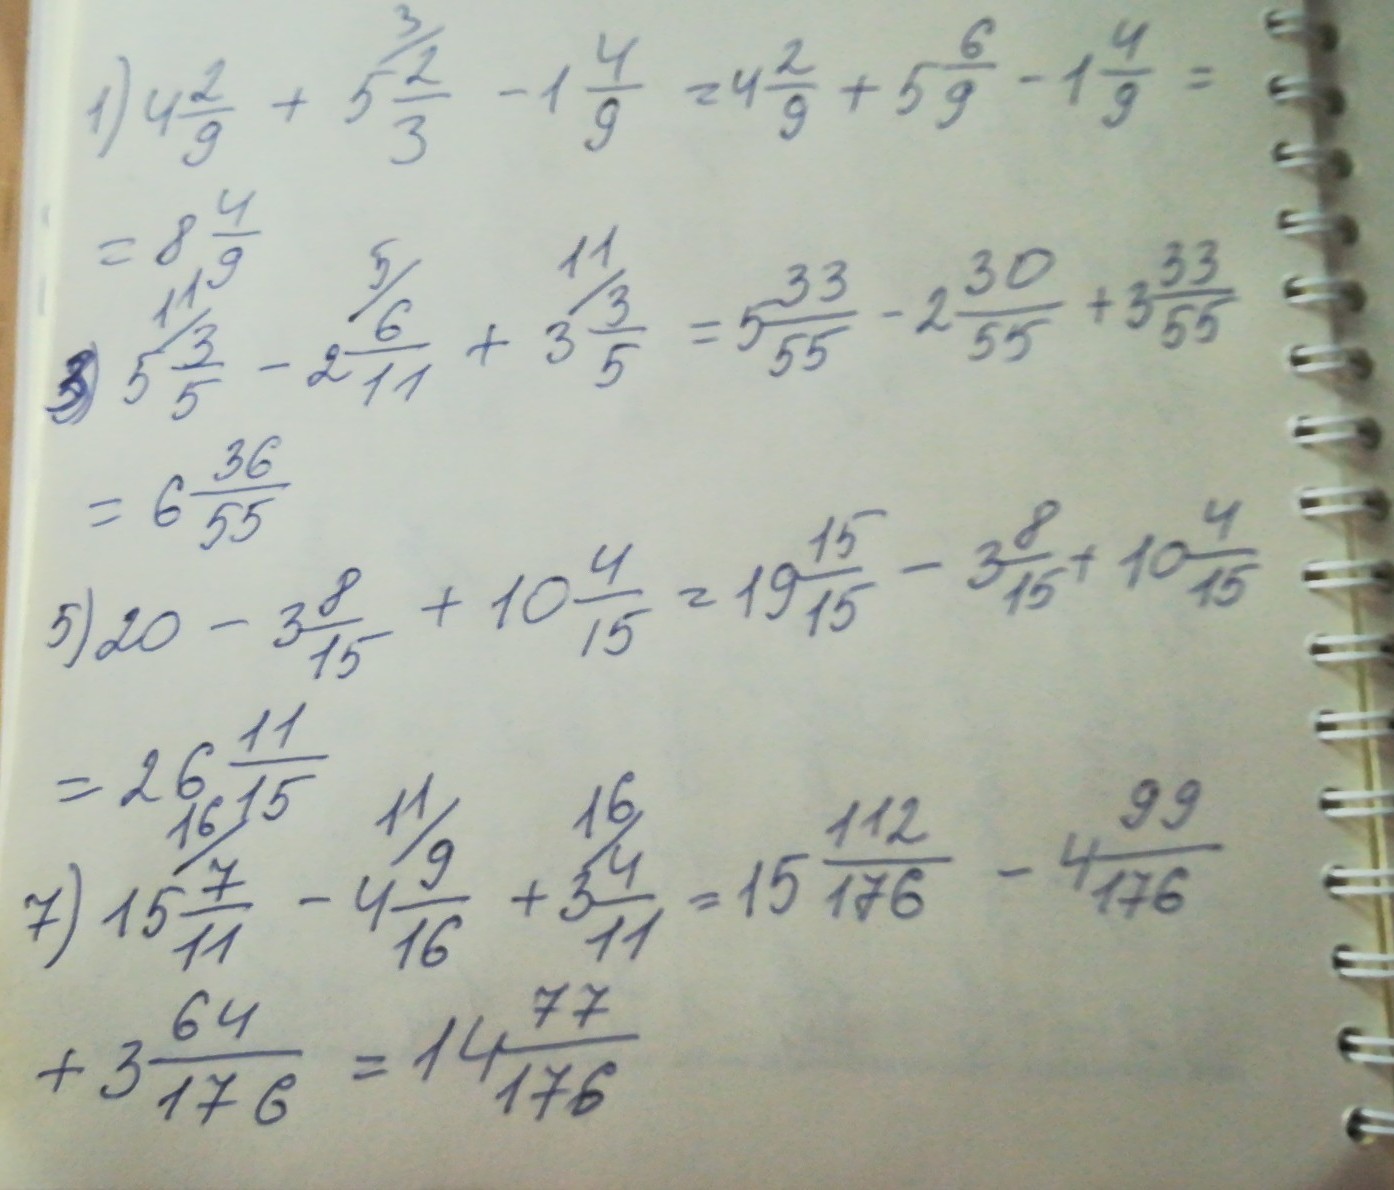 1) 4 2/9 + 5 2/3 (3/) - 1 4/9 = 4 2/9 + 5 6/9 - 1 4/9 =
= 8 4/9
3) 5 3/5 (11/) - 2 6/11 (5/) + 3 3/5 (11/) = 5 33/55 - 2 30/55 + 3 33/55
= 6 36/55
5) 20 - 3 8/15 + 10 4/15 = 19 15/15 - 3 8/15 + 10 4/15
= 26 11/15
7) 15 7/11 (16/) - 4 9/16 (11/) + 3 4/11 (16/) = 15 112/176 - 4 99/176
+ 3 64/176 = 14 77/176